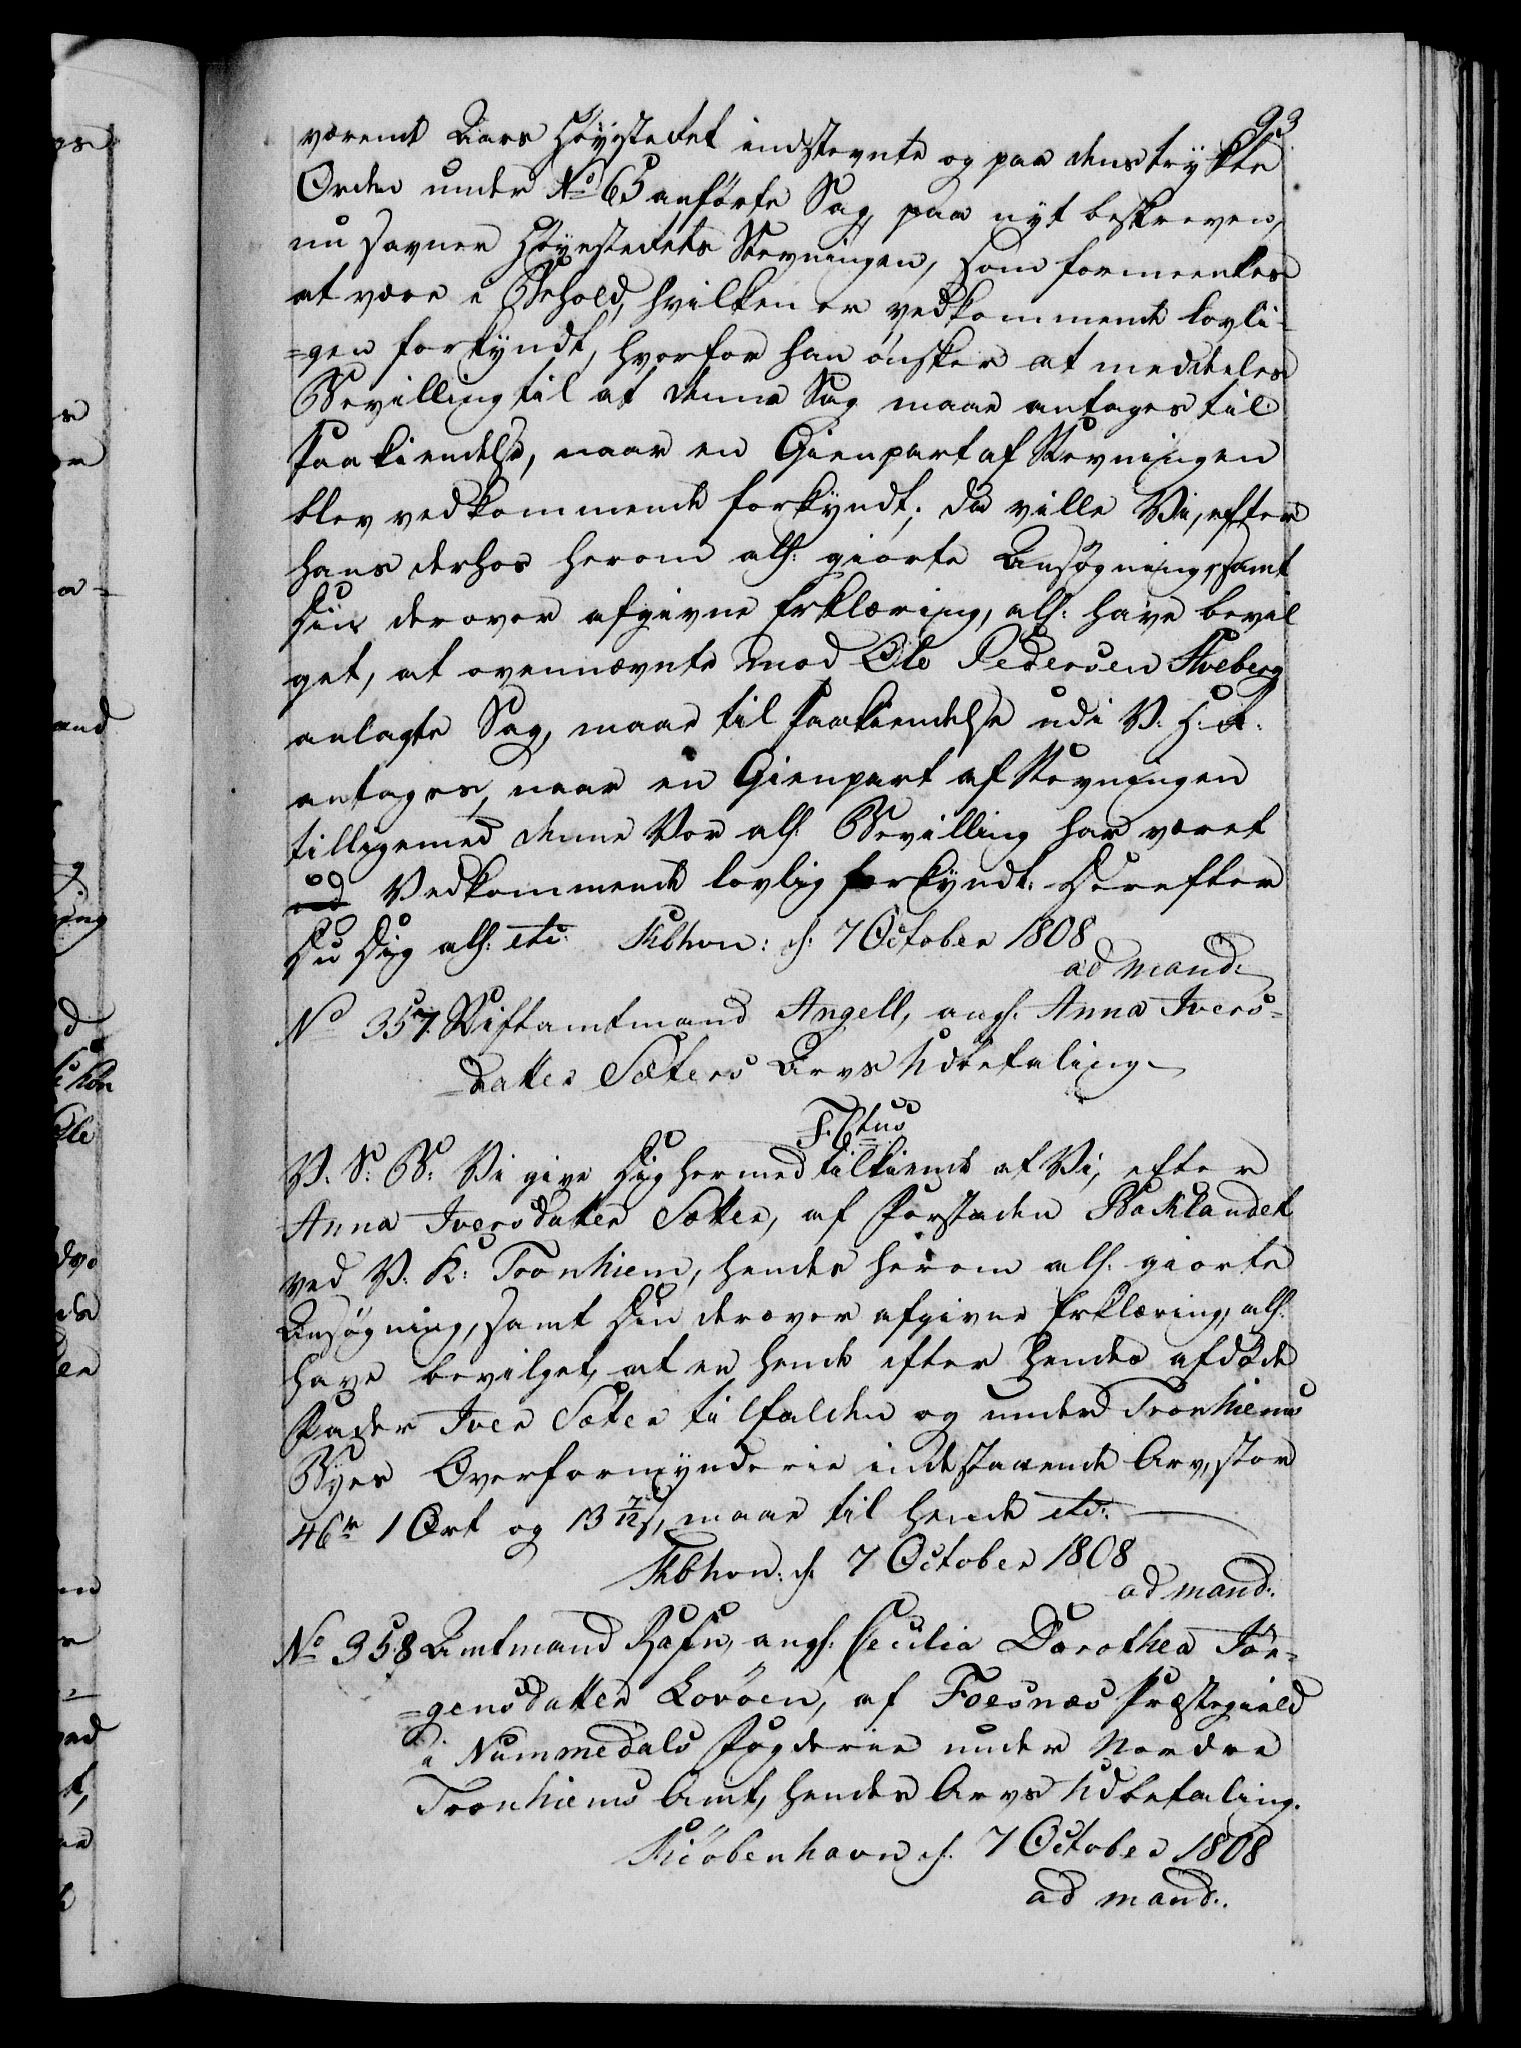 93
værende Aars Höyesteret indstevnte og paa den trykte
Orden under No 65 anførte Sag, paa nyt beskreven,
nu savner Höyesterets Stevningen, som formeenkes
at være i Behold, hvilken er vedkommende lovli-
=gen forkyndt, hvorfor han ønsker at meddeles
Bevilling til at denne Sag maae antages til
Paakiendelse, naar en Gienpart af Stevningen
blev vedkommende forkyndt; da ville Vi, efter
hans derhos herom alf: giorte Ansøgning, samt
Din derover afgivne Erklæring, alf: have bevil
get, at ovennævnte mod Ole Pedersen Kveberg
anlagte Sag, maae til Paakiendelse udi V. H: R:
antages, naar en Gienpart af Stevningen
tilligemed denne Vor alf: Bevilling har været
Vedkommende lovlig forkyndt. Derefter
Du Dig alf: etc: Kbhvn: d: 7 October 1808
ad mand:
No 357 Stiftamtmand Angell, angl. Anna Ivers-
=datter Sæters Arvs Udbetaling
V. S: B: Vi give Dig hermed tilkiende at Vi, efter
Anna Iversdatter Sætter, af Forstaden Baklandet
ved V. K: Tronhiem, hendes herom alf: giorte
Ansøgning, samt Din derover afgivne Erklæring, alf:
have bevilget, at en hende efter hendes afdøde
Fader Iver Sæter tilfalden og under Tronhiems
Byes Overformynderie indestaaende Arv, stor
46 rd 1 Ort og 13 7/12 s, maae til hende etc:
Kbhvn: d: 7 October 1808
ad mand:
No 358 Amtmand Hafn, angl. Cecilia Dorothea Jør-
=gensdatter Lovöen, af Foesnæs Præstegield
i Nummedals Fogderie under Nordre
Tronhiems Amt, hendes Arvs Udbetaling.
Kiöbenhavn d: 7 October 1808
ad mand: